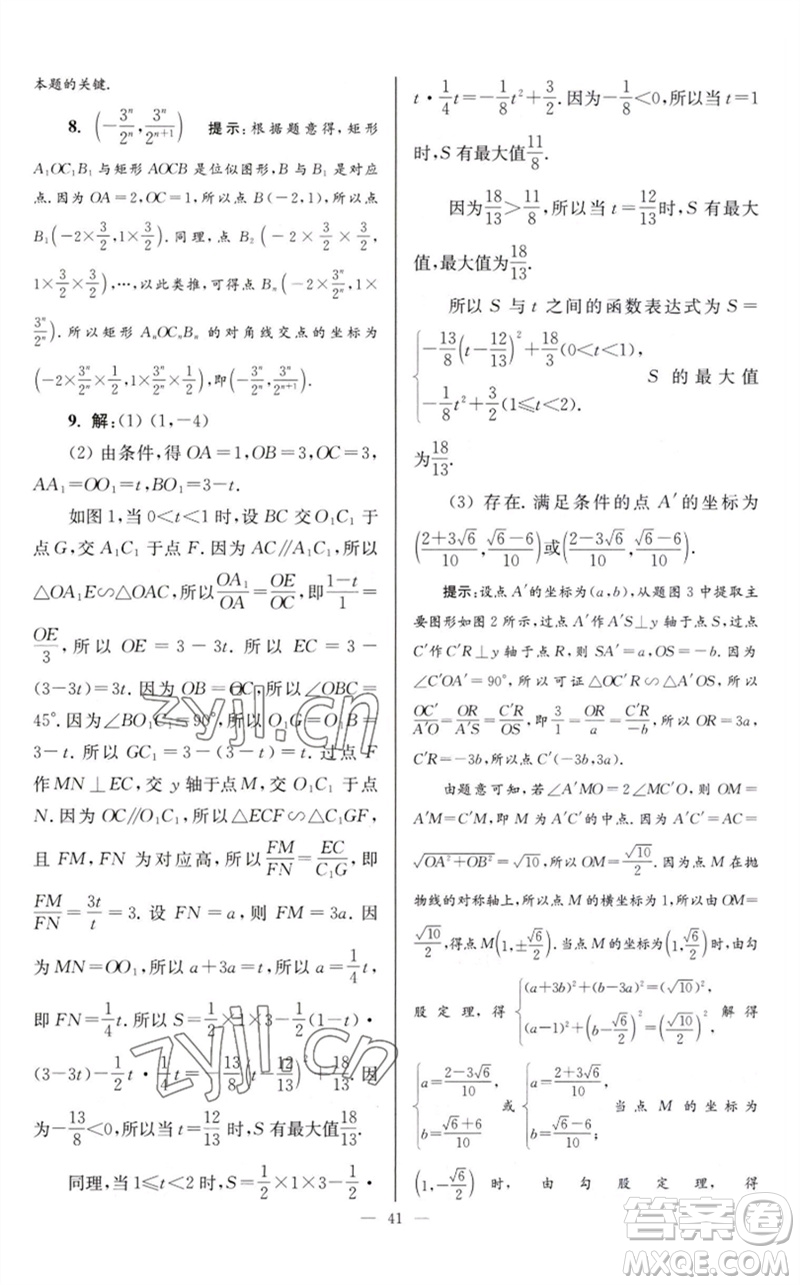 本题的关键.
8. (-3ⁿ/2ⁿ, 3ⁿ/2ⁿ⁺¹) 提示:根据题意得,矩形
A₁OC₁B₁ 与矩形 AOCB 是位似图形,B 与 B₁ 是对应
点.因为 OA=2,OC=1,所以点 B(-2,1),所以点
B₁(-2×3/2,1×3/2).同理,点 B₂(-2×3/2×3/2,
1×3/2×3/2),…,以此类推,可得点 Bₙ(-2×3ⁿ/2ⁿ,1×
3ⁿ/2ⁿ).所以矩形 AₙOCₙBₙ 的对角线交点的坐标为
(-2×3ⁿ/2ⁿ×1/2,1×3ⁿ/2ⁿ×1/2),即(-3ⁿ/2ⁿ,3ⁿ/2ⁿ⁺¹).
9. 解:(1) (1,-4)
(2) 由条件,得 OA=1,OB=3,OC=3,
AA₁=OO₁=t,BO₁=3-t.
如图1,当 0<t<1 时,设 BC 交 O₁C₁ 于
点 G,交 A₁C₁ 于点 F.因为 AC∥A₁C₁,所以
△OA₁E∽△OAC,所以OA₁/OA=OE/OC,即(1-t)/1=
OE/3,所以 OE=3-3t.所以 EC=3-
(3-3t)=3t.因为 OB=OC=3,所以∠OBC=
45°.因为∠BO₁C₁=90°,所以 O₁G=O₁B=
3-t.所以 GC₁=3-(3-t)=t.过点 F
作 MN⊥EC,交 y 轴于点 M,交 O₁C₁ 于点
N.因为 OC∥O₁C₁,所以△ECF∽△C₁GF,
且 FM,FN 为对应高,所以FM/FN=EC/C₁G,即
FM/FN=3t/t=3.设 FN=a,则 FM=3a.因
为 MN=OO₁,所以 a+3a=t,所以 a=1/4t,
即 FN=1/4t.所以 S=1/2×1×3-1/2(1-t)·
(3-3t)-1/2t·1/4t=-13/8(t-12/13)²+18/13.因
为-13/8<0,所以当 t=12/13时,S 有最大值18/13.
同理,当 1≤t<2 时,S=1/2×1×3-1/2·
t·1/4t=-1/8t²+3/2.因为-1/8<0,所以当 t=1
时,S 有最大值11/8.
因为18/13>11/8,所以当 t=12/13时,S 有最大
值,最大值为18/13.
所以 S 与 t 之间的函数表达式为 S=
{-13/8(t-12/13)²+18/13(0<t<1),
-1/8t²+3/2(1≤t<2). S 的最大值
为18/13.
(3) 存在.满足条件的点 A′的坐标为
((2+3√6)/10,(√6-6)/10)或((2-3√6)/10,(√6-6)/10).
提示:设点 A′的坐标为(a,b),从题图 3 中提取主
要图形如图 2 所示,过点 A′作 A′S⊥y 轴于点 S,过点
C′作 C′R⊥y 轴于点 R,则 SA′=a,OS=-b.因为
∠C′OA′=90°,所以可证△OC′R∽△A′OS,所以
OC′/A′O=OR/A′S=C′R/OS,即3/1=OR/a=C′R/-b,所以 OR=3a,
C′R=-3b,所以点 C′(3b,3a).
由题意可知,若∠A′MO=2∠MC′O,所以 OM=
A′M=C′M,即 M 为 A′C′的中点.因为 A′C′=AC=
√(OA²+OB²)=√10,所以 OM=√10/2.因为点 M 在抛
物线的对称轴上,所以点 M 的横坐标为1,所以由 OM=
√10/2,得点 M(1,±√6/2).当点 M 的坐标为(1,√6/2)时,由勾
股定理,得{(a+3b)²+(b-3a)²=(√10)²,
(a-1)²+(b-√6/2)²=(√10/2)², 解得
{a=(2-3√6)/10,
b=(√6+6)/10 或{a=(2+3√6)/10,
b=(√6-6)/10; 当点 M 的坐标为
(1,-√6/2)时,由勾股定理,得
— 41 —
zyjl.cn
zyjl.cn
答案卷
MXQE.COM